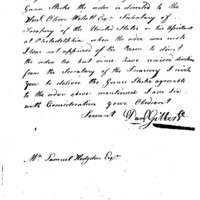 Gun Stocks the order is directed to the
Honble Oliver Wolcott Esqr Secretary of
Treasury of the United States or his Assistant
at Philadelphia when the order was wrote
I was not apprised of the Person to direct
the order too but since have received direction
from the Secretary of the Treasury I wish
you to deliver the Gunn Stocks agreeable
to the order above mentioned I am Sir
with Consideration your Obedient
Servant Danl Gilbert
Mr. Samuel Hodgdon Esqr